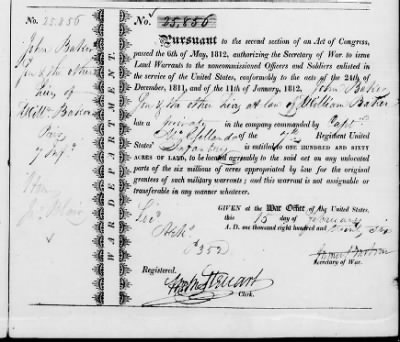 No. 25,856
John Baker
Jr & the other
heirs of
Will.m Baker
7 Inf.y
WAR DEPARTMENT
No. 25,856
Pursuant to the second section of an Act of Congress,
passed the 6th of May, 1812, authorizing the Secretary of War to issue
Land Warrants to the noncommissioned Officers and Soldiers enlisted in
the service of the United States, conformably to the acts of the 24th of
December, 1811, and of the 11th of January, 1812. John Baker
Jr & the other heirs at law of William Baker
late a private in the company commanded by Capt.
of the 7th Regiment United
States' Infantry is entitled to ONE HUNDRED AND SIXTY
ACRES OF LAND, to be located agreeably to the said act on any unlocated
parts of the six millions of acres appropriated by law for the original
grantees of such military warrants; and this warrant is not assignable or
transferable in any manner whatever.
GIVEN at the War Office of the United States,
this 15 day of February
A. D. one thousand eight hundred and twenty six
Secretary of War.
Registered.
Clerk.